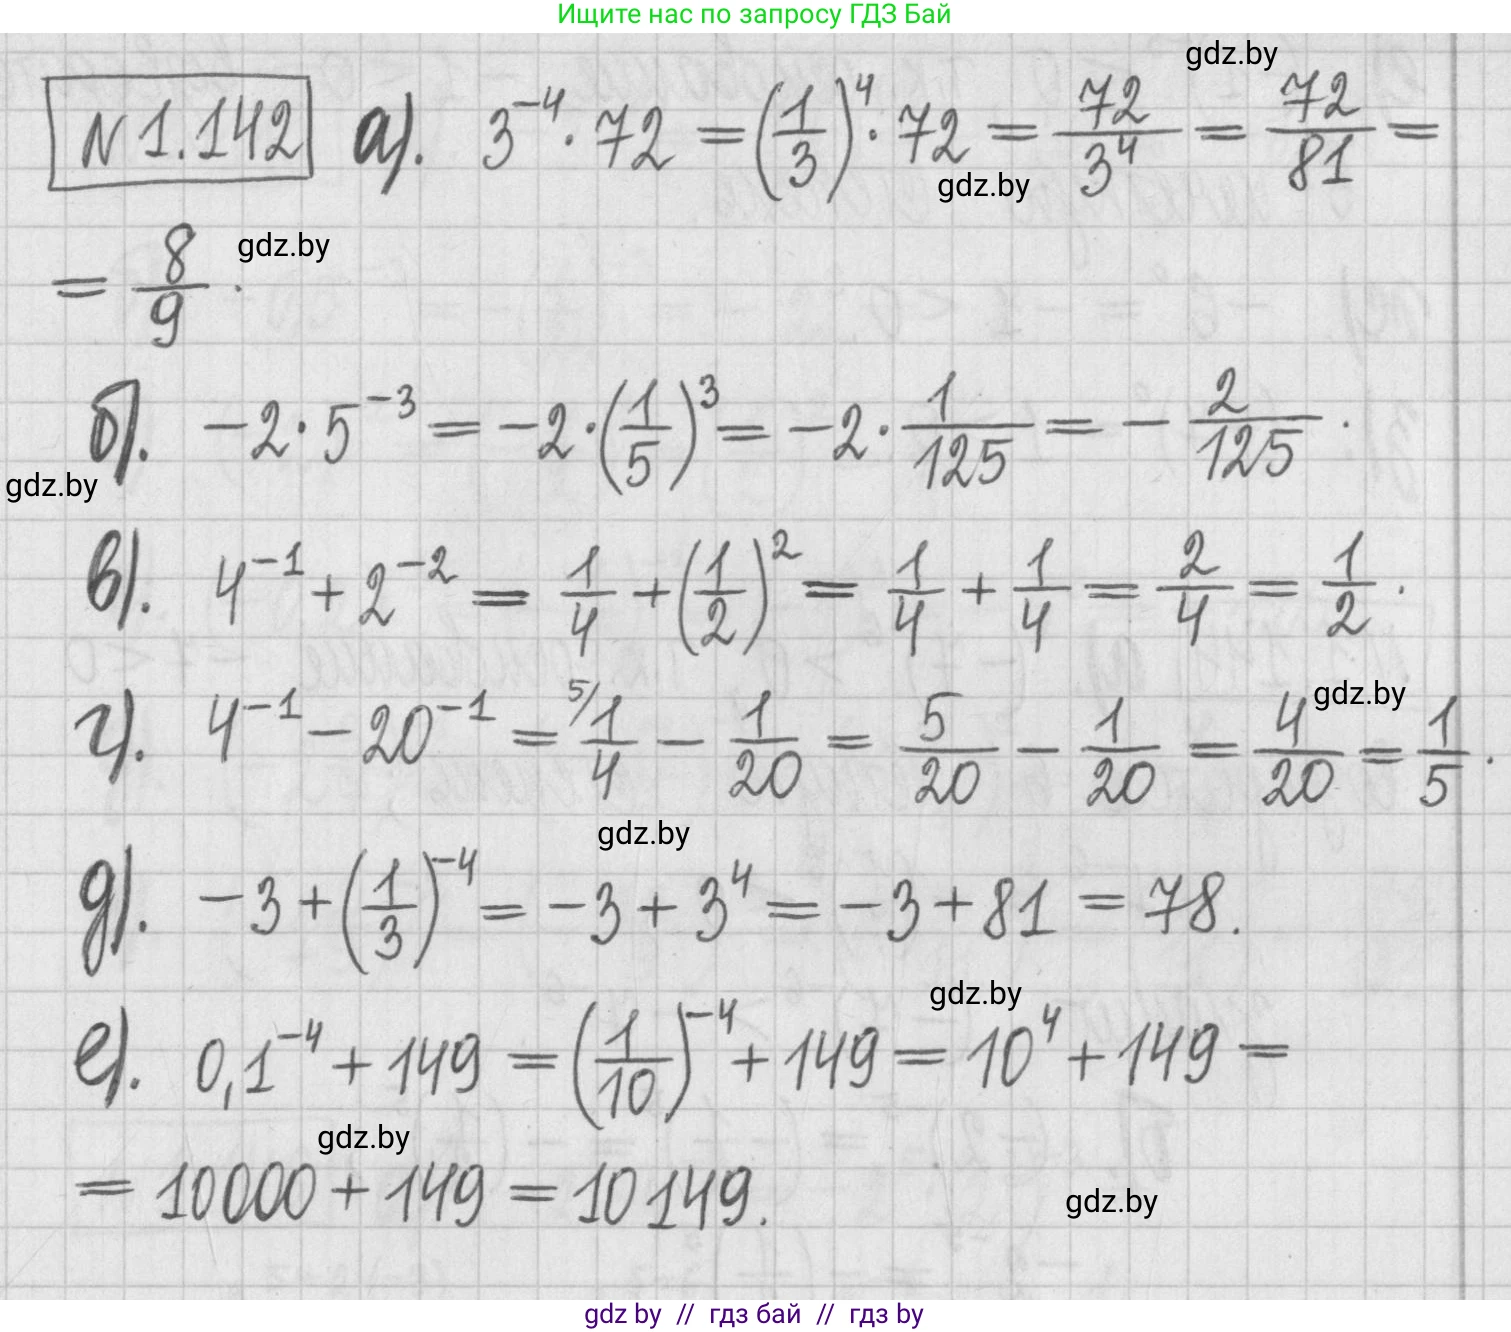 Ищите нас по запросу ГДЗ Бай
gdz.by
N 1.142 а). 3^{-4} · 72 = (1/3)^4 · 72 = 72/3^4 = 72/81 =
gdz.by
= 8/9 .
gdz.by
б). -2 · 5^{-3} = -2 · (1/5)^3 = -2 · 1/125 = - 2/125 .
gdz.by
в). 4^{-1} + 2^{-2} = 1/4 + (1/2)^2 = 1/4 + 1/4 = 2/4 = 1/2 .
gdz.by
г). 4^{-1} - 20^{-1} = ^{5/} 1/4 - 1/20 = 5/20 - 1/20 = 4/20 = 1/5 .
gdz.by
д). -3 + (1/3)^{-4} = -3 + 3^4 = -3 + 81 = 78.
gdz.by
е). 0,1^{-4} + 149 = (1/10)^{-4} + 149 = 10^4 + 149 =
gdz.by
= 10000 + 149 = 10149.
gdz.by
gdz by // гдз бай // гдз by